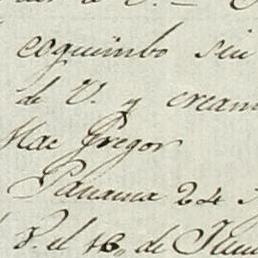 coquimbo sin
de V. y crean
Mac Gregor
Panama 24
P. el 16, de